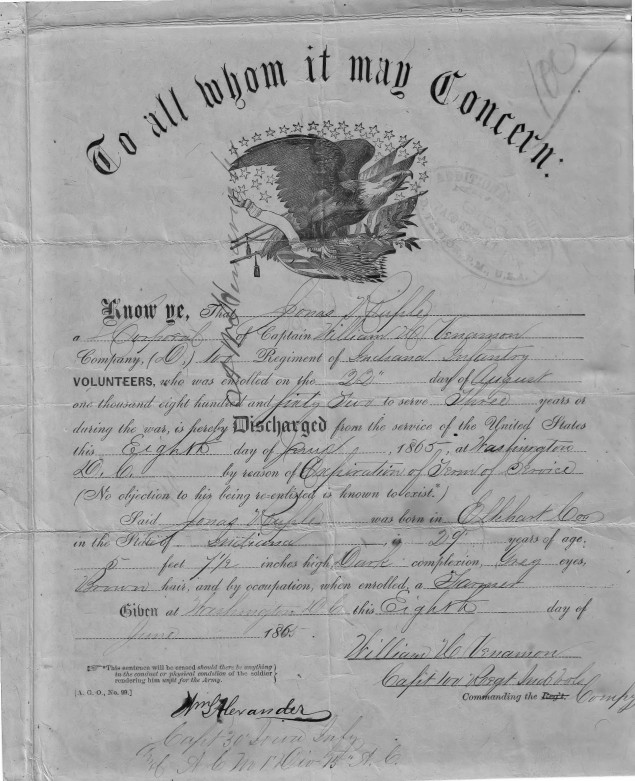 100
To all whom it may Concern:
Know ye, That Jonas
a Corporal of Captain William H Venamon
Company, (D,) 100 Regiment of Indiana Infantry
VOLUNTEERS, who was enrolled on the 22" day of August
one thousand eight hundred and sixty Two to serve Three years or
during the war, is hereby Discharged from the service of the United States
this Eighth day of June, 1865, at Washington
D. C. by reason of Expiration of Term of Service
(No objection to his being re-enlisted is known to exist.*)
Said Jonas was born in Elkhart Coo
in the State of Indiana, is 29 years of age,
5 feet 7½ inches high, Dark complexion, Grey eyes,
Brown hair, and by occupation, when enrolled, a Farmer
Given at Washington D. C. this Eighth day of
June 1865.
*This sentence will be erased should there be anything
in the conduct or physical condition of the soldier
rendering him unfit for the Army.
[A. G. O., No. 99.]
William H Venamon
Capt 100 Regt Ind Vols
Commanding the Regt. Compy
Wm Alexander
Capt 30 Iowa Infy
A. C. M. 1" Div 15" A. C.